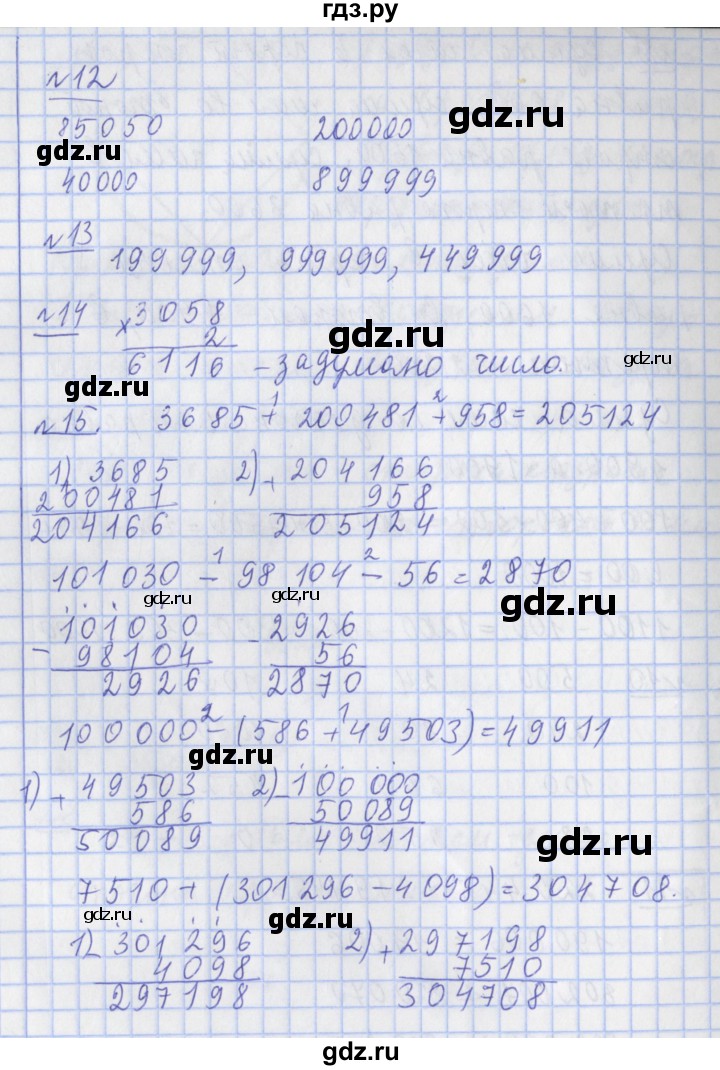 гдз.ру
№12
85050 200000
gdz.ru
gdz.ru
40000 899999
gdz.ru
№13
199999, 999999, 449999
№14
× 3058
2
6116 – задумано число.
gdz.ru
gdz.ru
gdz.ru
№15. 3685 + 200481 + 958 = 205124
1 2
1) 3685 2) + 204166
200481 958
204166 205124
101030 – 98104 – 56 = 2870
1 2
gdz.ru
gdz.ru
gdz.ru
– 101030 – 2926
98104 56
2926 2870
100000 – (586 + 49503) = 49911
2 1
gdz.ru
1) + 49503 2) – 100000
586 50089
50089 49911
gdz.ru
7510 + (301296 – 4098) = 304708.
gdz.ru
gdz.ru
1) – 301296 2) + 297198
4098 7510
297198 304708
gdz.ru
gdz.ru
gdz.ru